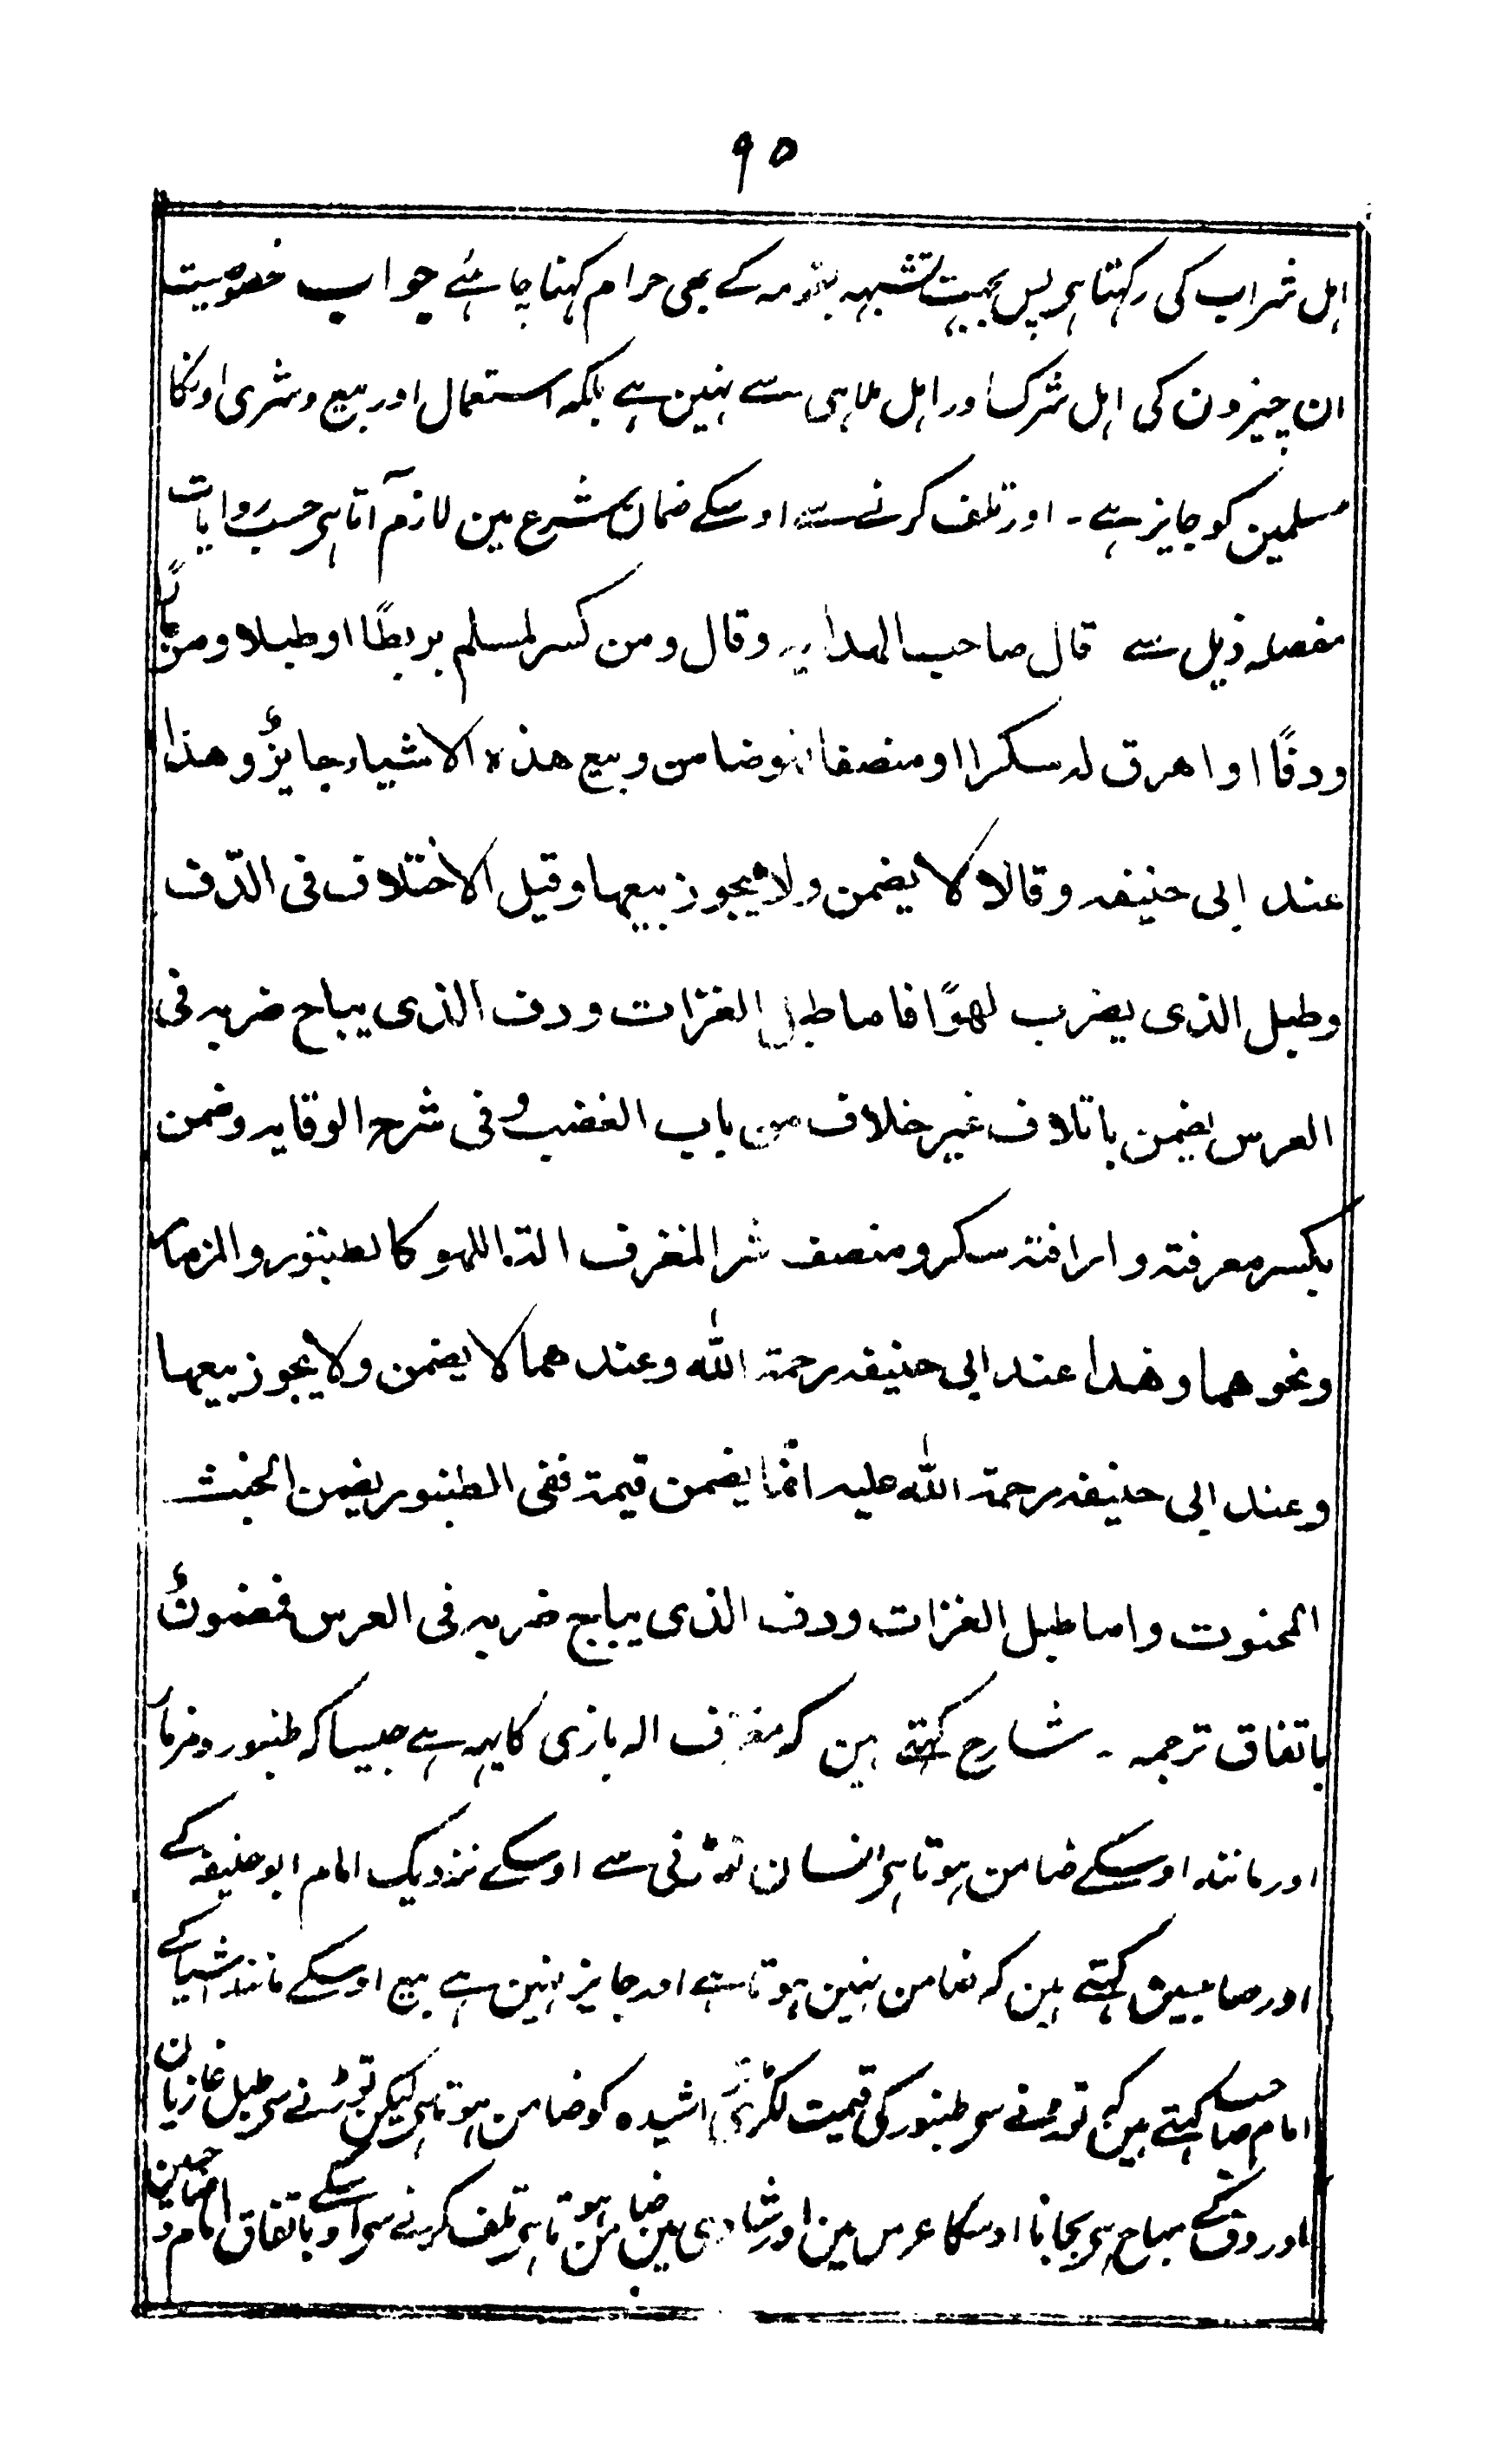 ۹۵
اہل شراب کی رکہتا ہی پس بجہت تشبہہ کے بھی حرام کہنا چاہئے جواب خصوصیت
ان چیزون کی اہل شرک اور اہل ملاہی سے نہین ہے بلکہ استعمال اور بیع و شری اونکا
مسلمین کو جایز ہے۔ اور تلف کرنے سے اوسکے ضمان شرع مین لازم آتا ہی حسب روایات
مفصلہ ذیل سے قال صاحب الهدایه وقال ومن کسر لمسلم بربطًا اوطبلا ومن
ودفًا او اهرق له سکرا او منصفا فهو ضامن وبیع هذه الاشیاء جایزٌ وهذا
عند ابی حنیفه وقالا لا یضمن ولا یجوز بیعها وقیل الاختلاف فی الدّف
وطبل الذی یضرب لهوًا فاما طبل الغزات ودف الذی یباح ضربه فی
العرس یضمن باتلاف غیر خلاف من باب الغضب وفی شرح الوقایه وضمن
بکسر معرفته واراقته سکر ومنصف شر المغرف الته اللهو کالطنبور والمزمار
ونحوهما وهذا عند ابی حنیفه رحمة الله وعندهما لا یضمن ولا یجوز بیعها
وعند ابی حنیفه رحمة الله علیه انّما یضمن قیمة ففی الطنبور یضمن الخشب
المنحوت واما طبل الغزات ودف الذی یباح ضربه فی العرس فمضمونٌ
باتفاق ترجمہ۔ شارح کہتے ہین کہ مغرف الہ بازی کا یہہ ہے جیسا کہ طنبور ومزمار
اور مانند اوسکے ضامن ہوتا ہی انسان توڑنی سے اوسکے نزدیک امام ابو حنیفہ کے
اور صاحبین کہتے ہین کہ ضامن نہین ہوتا ہے اور جایز نہین ہے بیع اوسکے مانند اشیا کے
امام صاحب کہتے ہین کہ توڑنے سی طنبور کی قیمت لکڑی تراشیدہ کو ضامن ہوتا ہی لیکن توڑنے سی طبل غازیان
اور دف کے مباح ہی بجانا اوسکا عرس مین اور شادی مین ضامن ہوتا ہی تلف کرنے سی اوسکے باتفاق امام و صاحبین